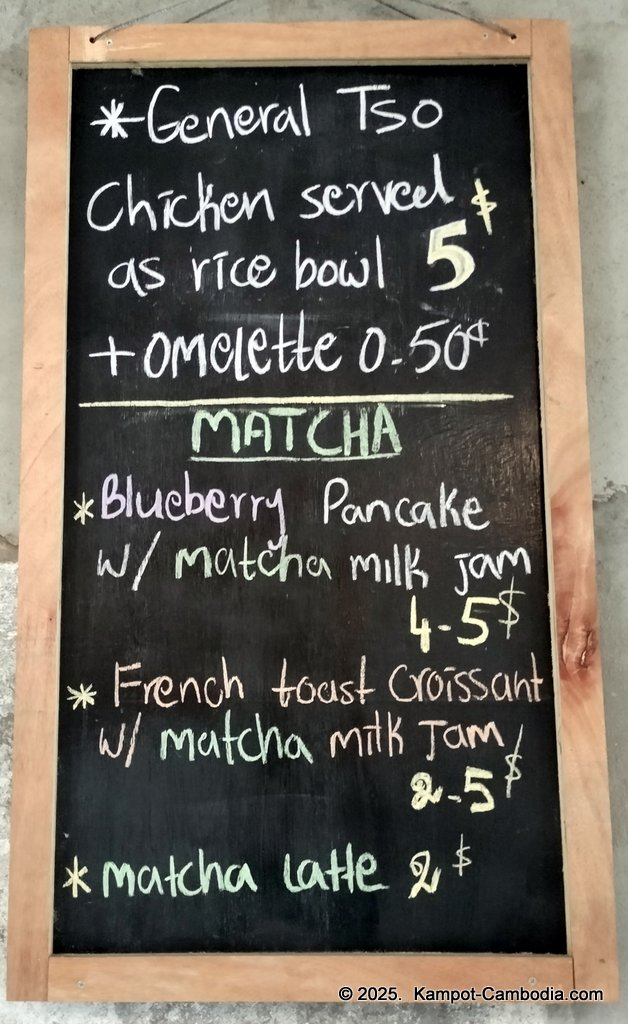 *General Tso
Chicken served
as rice bowl 5$
+ omelette 0-50¢
MATCHA
*Blueberry Pancake
w/ matcha milk jam
4-5$
* French toast Croissant
w/ matcha milk Jam
2-5$
* matcha latte 2$
© 2025. Kampot-Cambodia.com